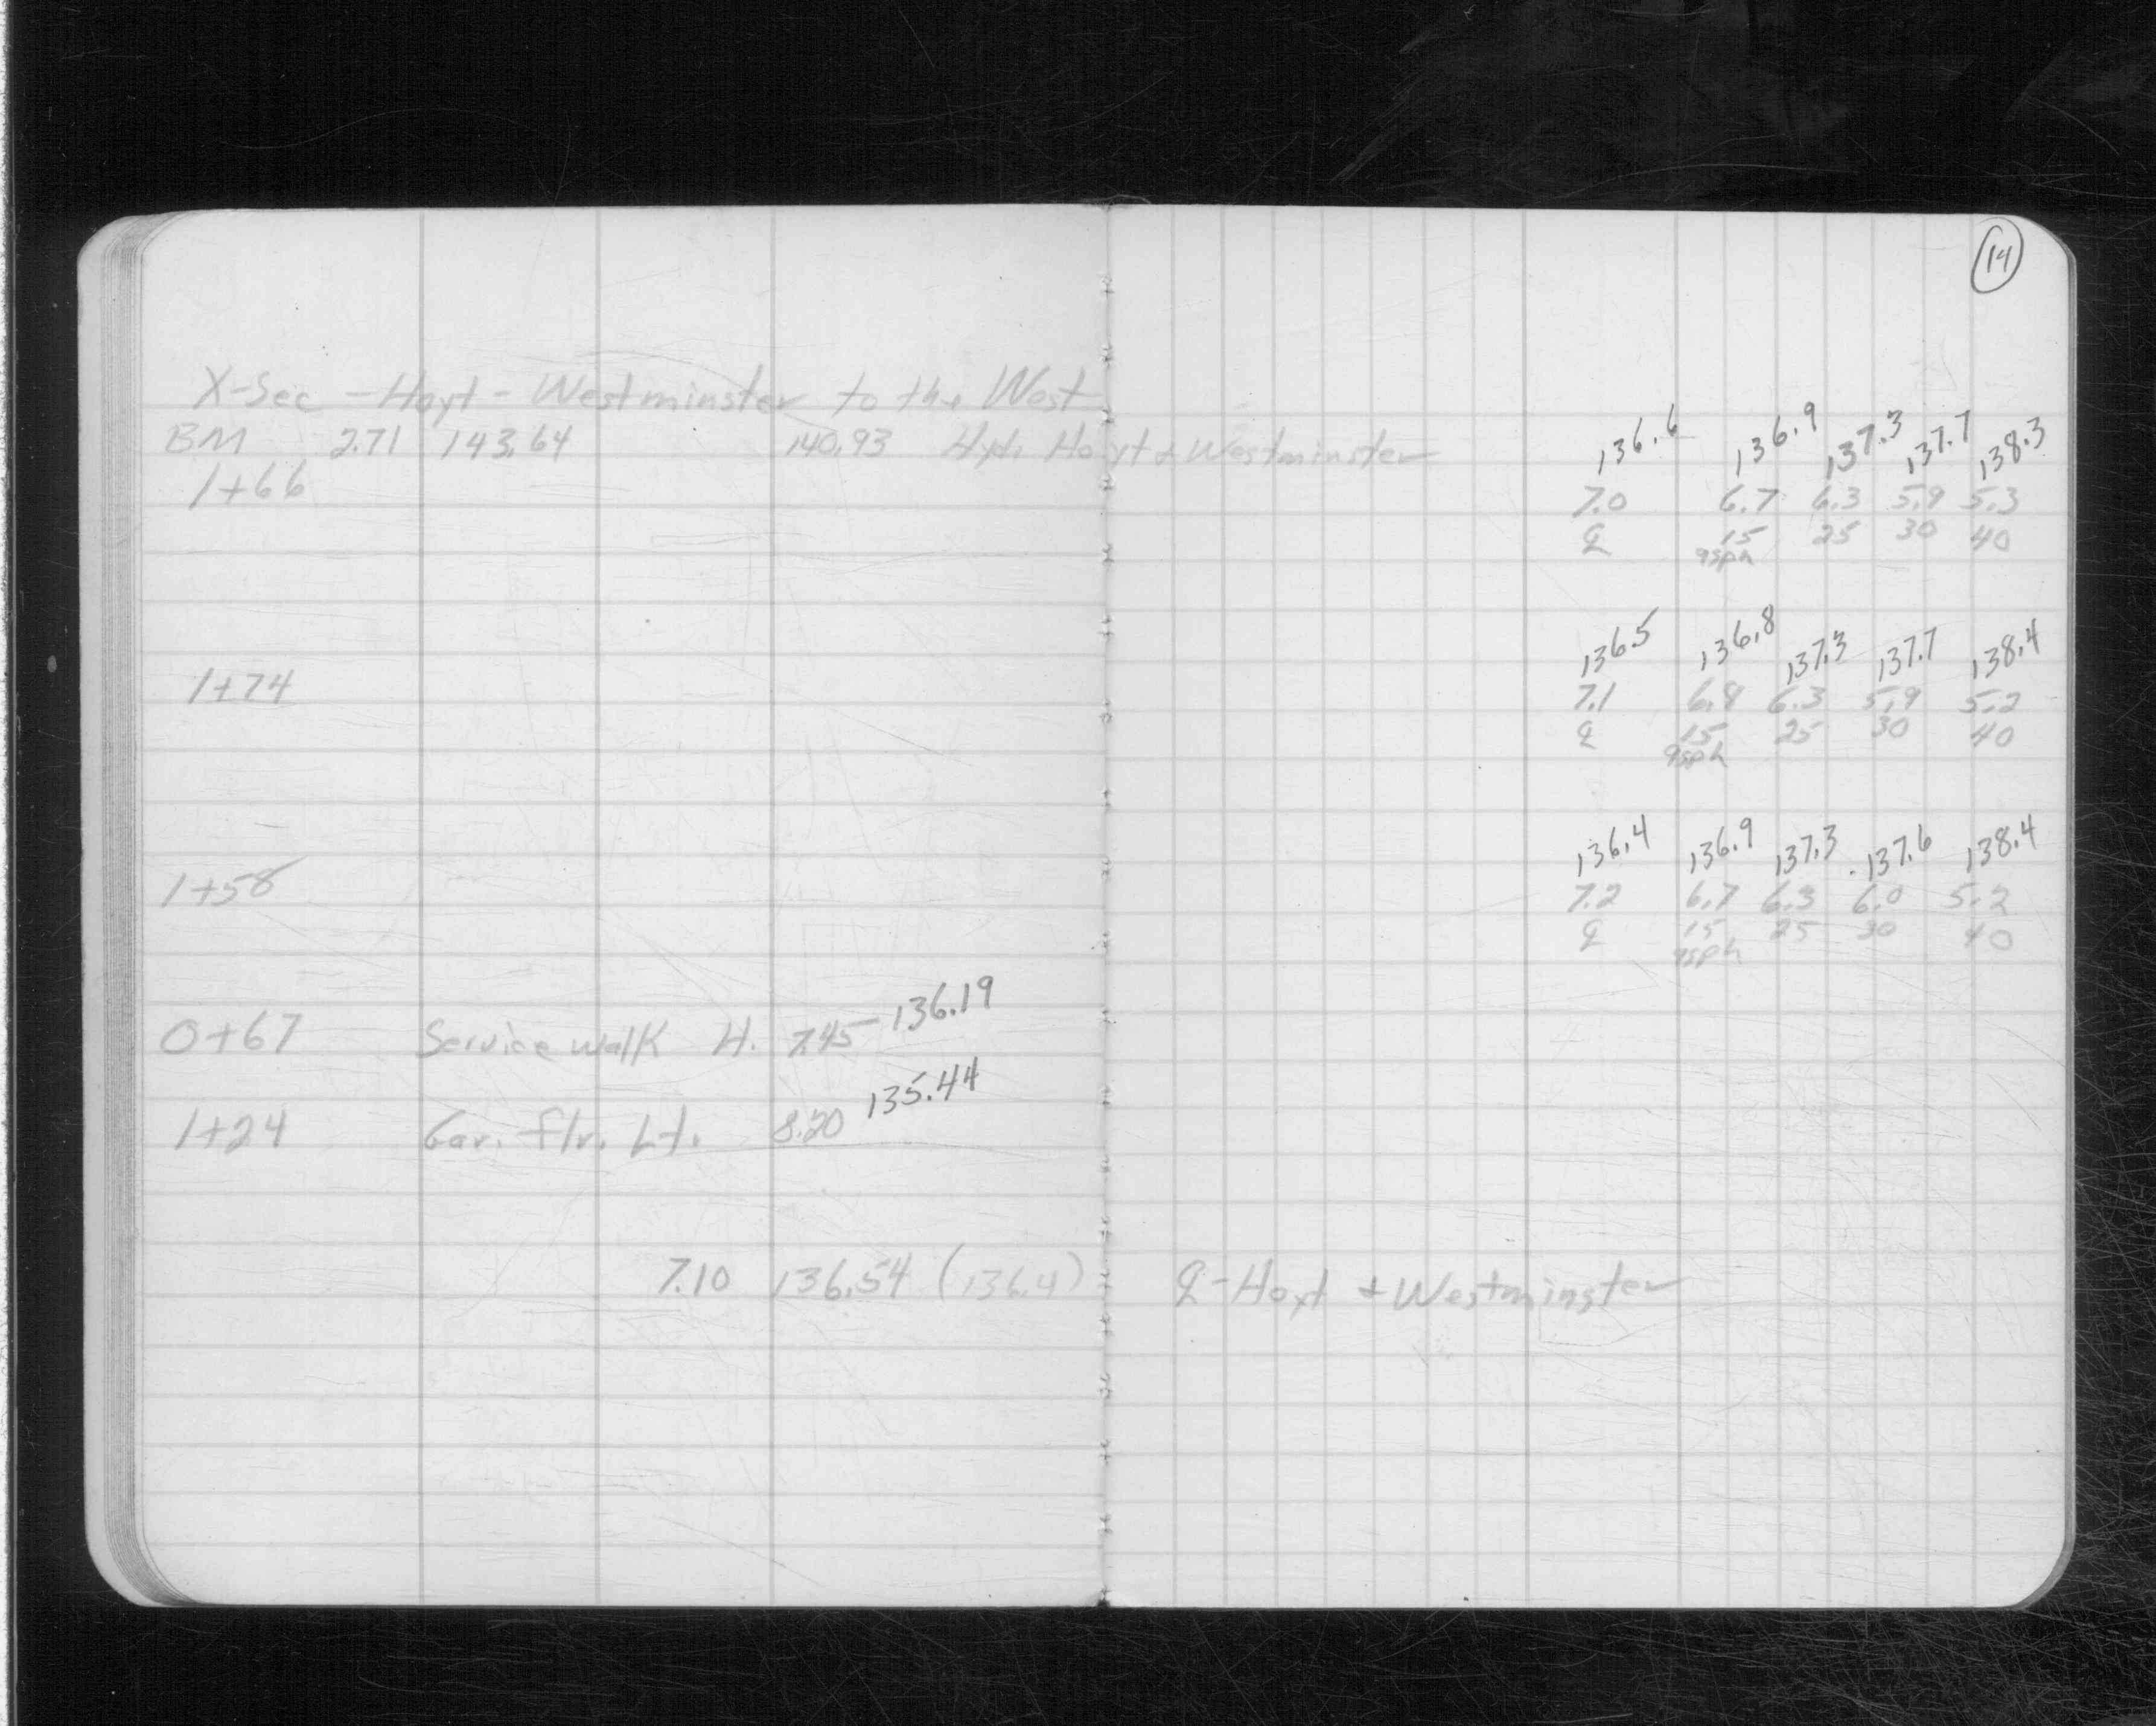 14
X-Sec - Hoyt - Westminster to the West
BM 2.71 143.64 140.93 Hyd. Hoyt & Westminster
136.6 136.9 137.3 137.7 138.3
1+66 7.0 6.7 6.3 5.9 5.3
℄ 15 25 30 40
asph
136.5 136.8 137.3 137.7 138.4
1+74 7.1 6.8 6.3 5.9 5.2
℄ 15 25 30 40
asph
136.4 136.9 137.3 137.6 138.4
1+58 7.2 6.7 6.3 6.0 5.2
℄ 15 25 30 40
asph
0+67 Service walk 7.45 - 136.19
1+24 Gar. flr. Lt. 8.20 135.44
7.10 136.54 (136.4) ℄ - Hoyt & Westminster